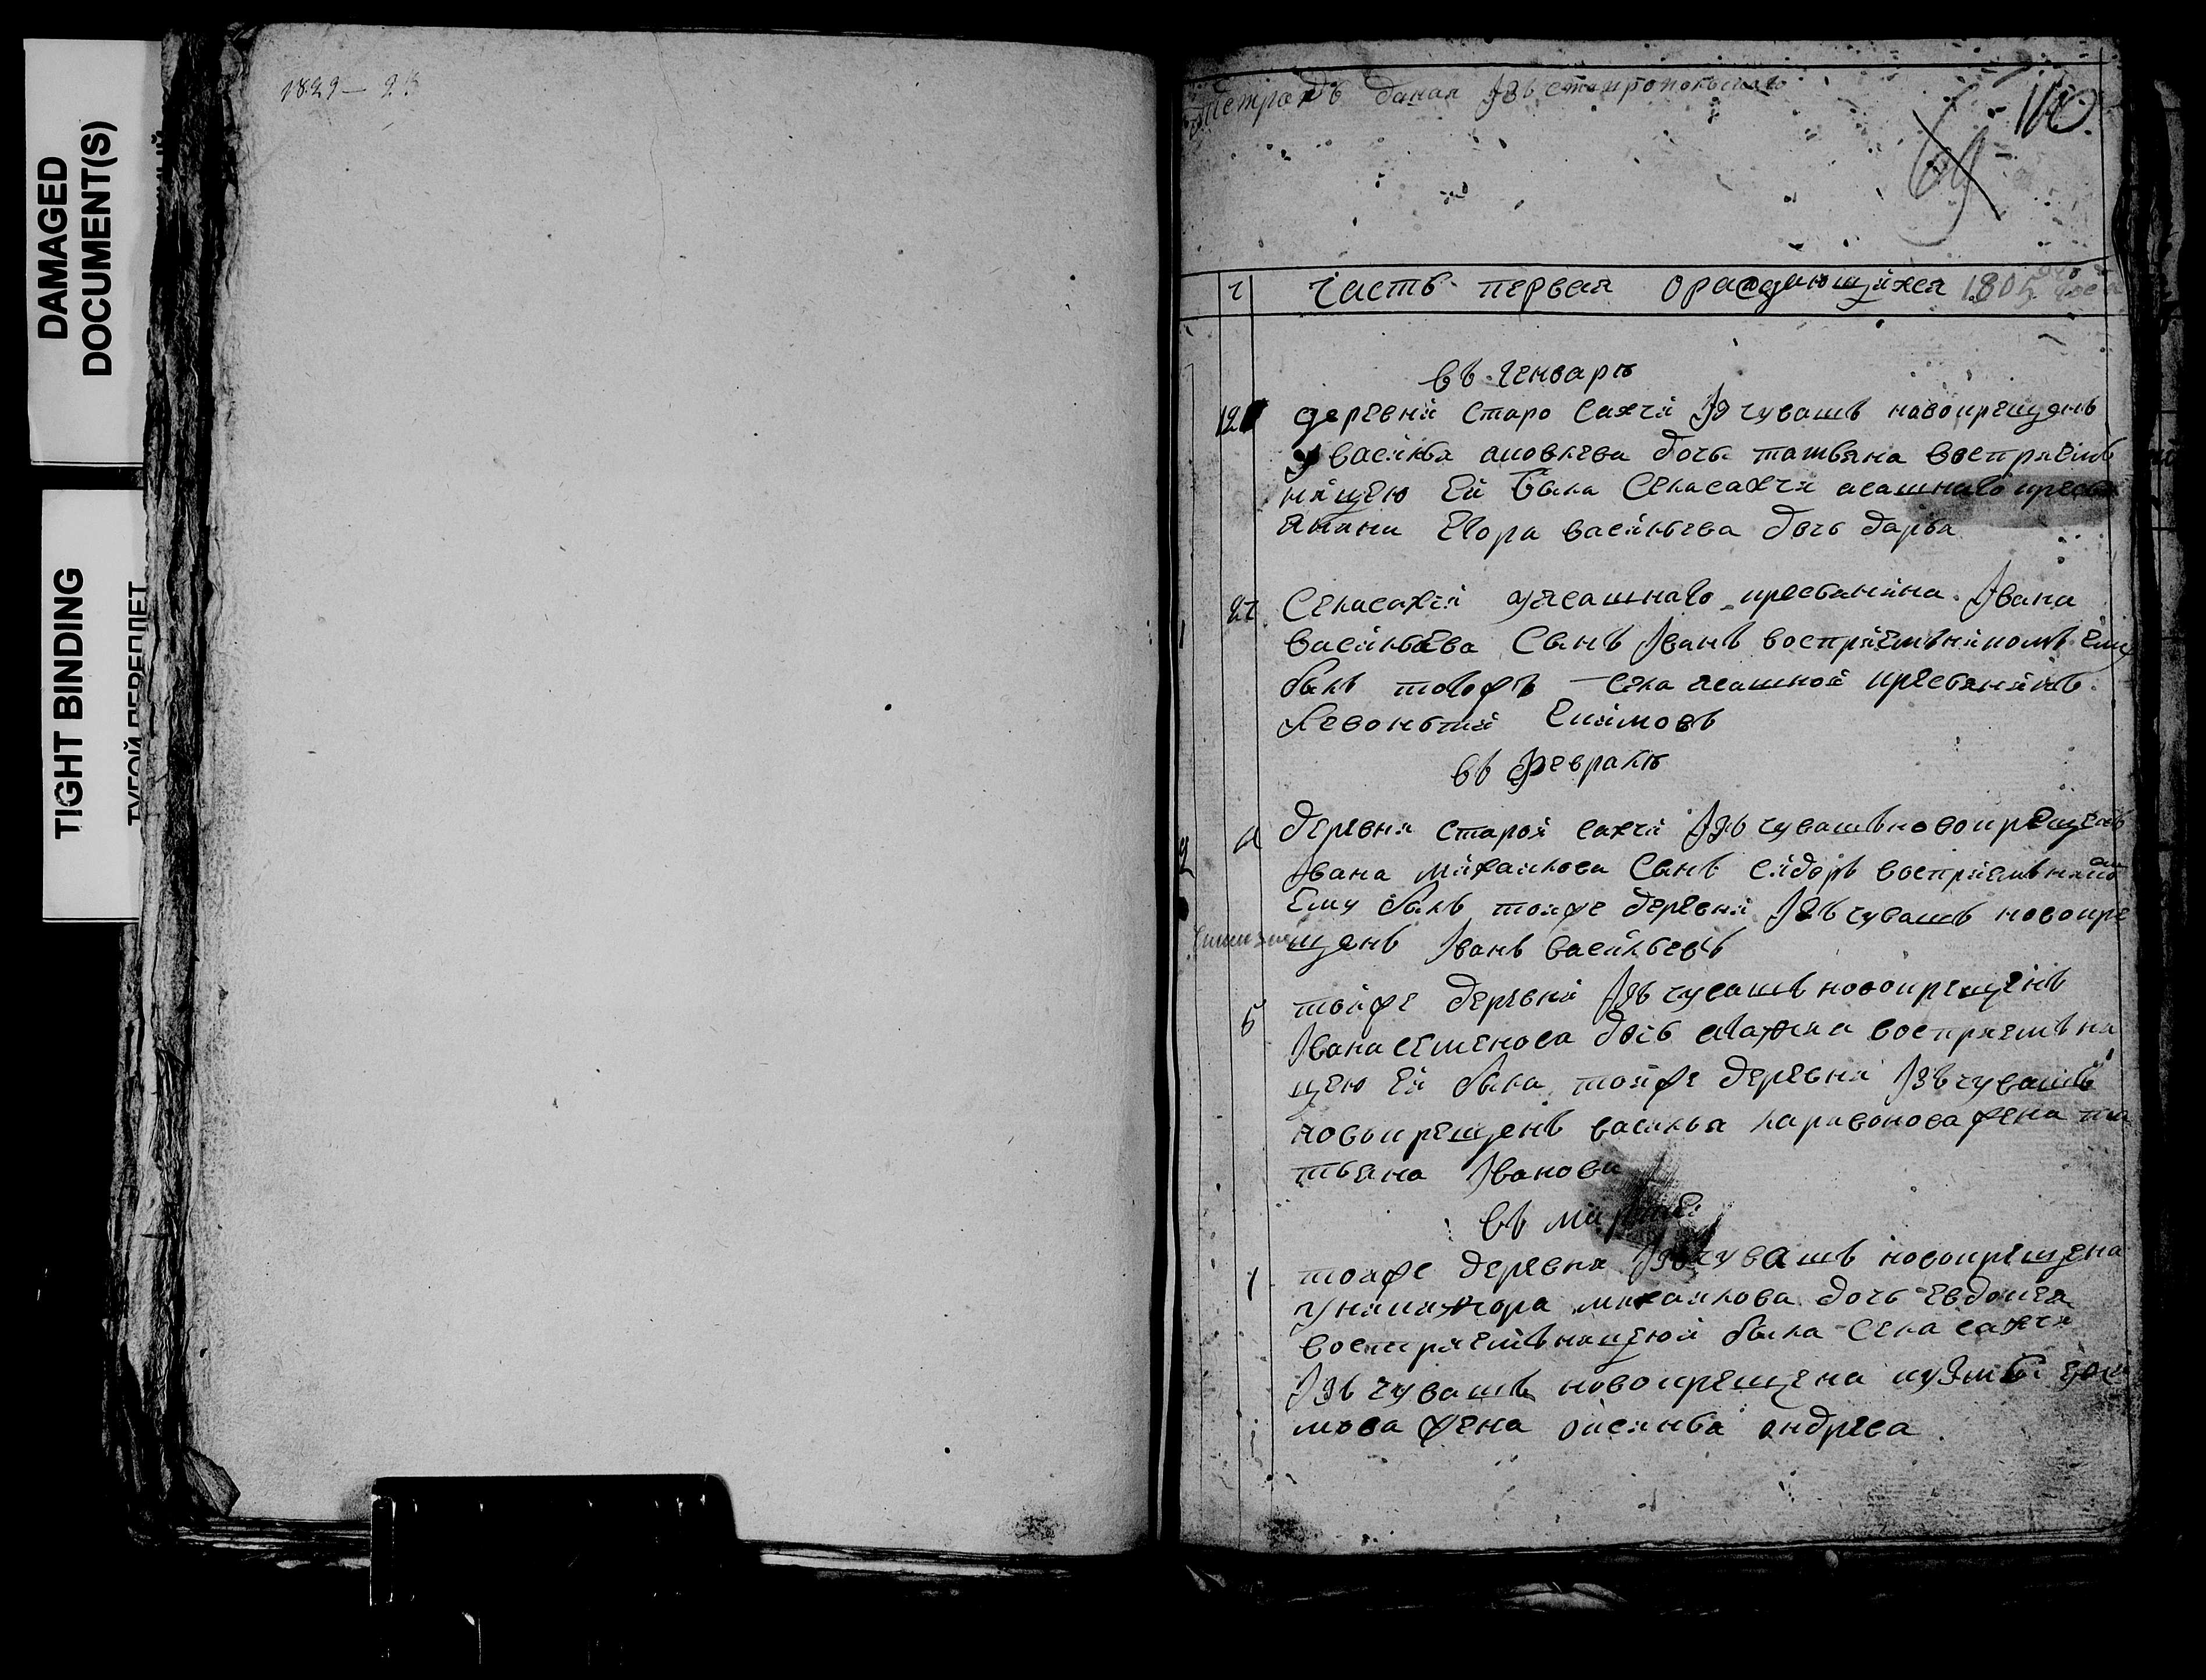 DAMAGED
DOCUMENT(S)
TIGHT BINDING
ТУГОЙ ПЕРЕПЛЕТ
1829 —
тетрадь даная Изъ ставропольскаго
100
69
ч Часть первая ораждающихся 180
въ генваре
деревни старо Сахчи Iз чувашъ новокрещенъ
василья дочь татьяна восприемъ
ницею Ей была Села сахчи ясашнаго кресть
янина Егора васильева дочь дарья
27 Села сахчи ясашнаго крестьянина Iвана
васильева Сынъ Iванъ восприемникомъ ему
былъ тогожъ села ясашной крестьянинъ
Левонътий Екимовъ
въ Феврале
2 деревни старой сахчи Iзъ чувашъ новокрещенъ
Iвана михайлова Сынъ сидоръ восприемъ
Ему былъ тойже деревни Iзъ чувашъ новокре
щенъ Iванъ васильевъ
5 тойже деревни Iзъ чувашъ новокрещенъ
Iвана семенова дочь агафия восприемъни
цею Ей была тойже деревни Iзъ чувашъ
новокрещенъ василья ларивонова жена та
тьяна Iванова
въ марте
1 тойже деревни Iзъ чувашъ новокрещена
михайлова дочь Евдокея
восприемъницеюй была села сахчи
Iзъ чувашъ новокрещена кузмы
мова жена оксинья андреева